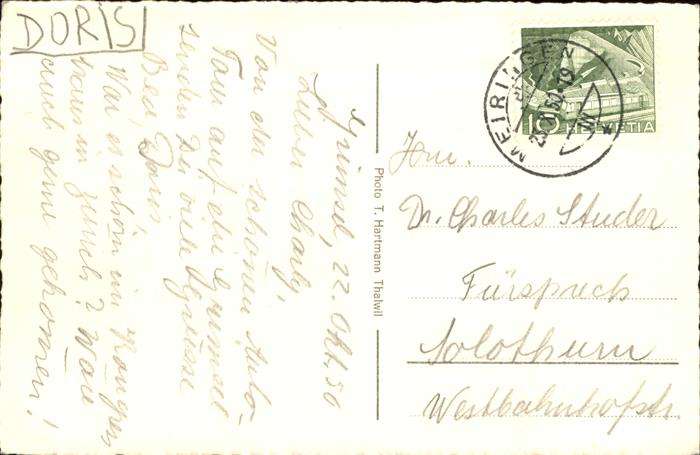 DORIS
Grimsel, 22. Okt. 50
Lieber Charly,
Von der schönen Auto-
Tour auf die Grimsel
senden Dir viele Grüsse
Bea, Doris
War es schön im Kongress
haus in Zürich? Wäre
auch gerne gekommen!
Photo T. Hartmann Thalwil
MEIRINGEN
10 HELVETIA
Hrn.
Dr. Charles Studer
Fürspruch
Solothurn
Westbahnhofstr.